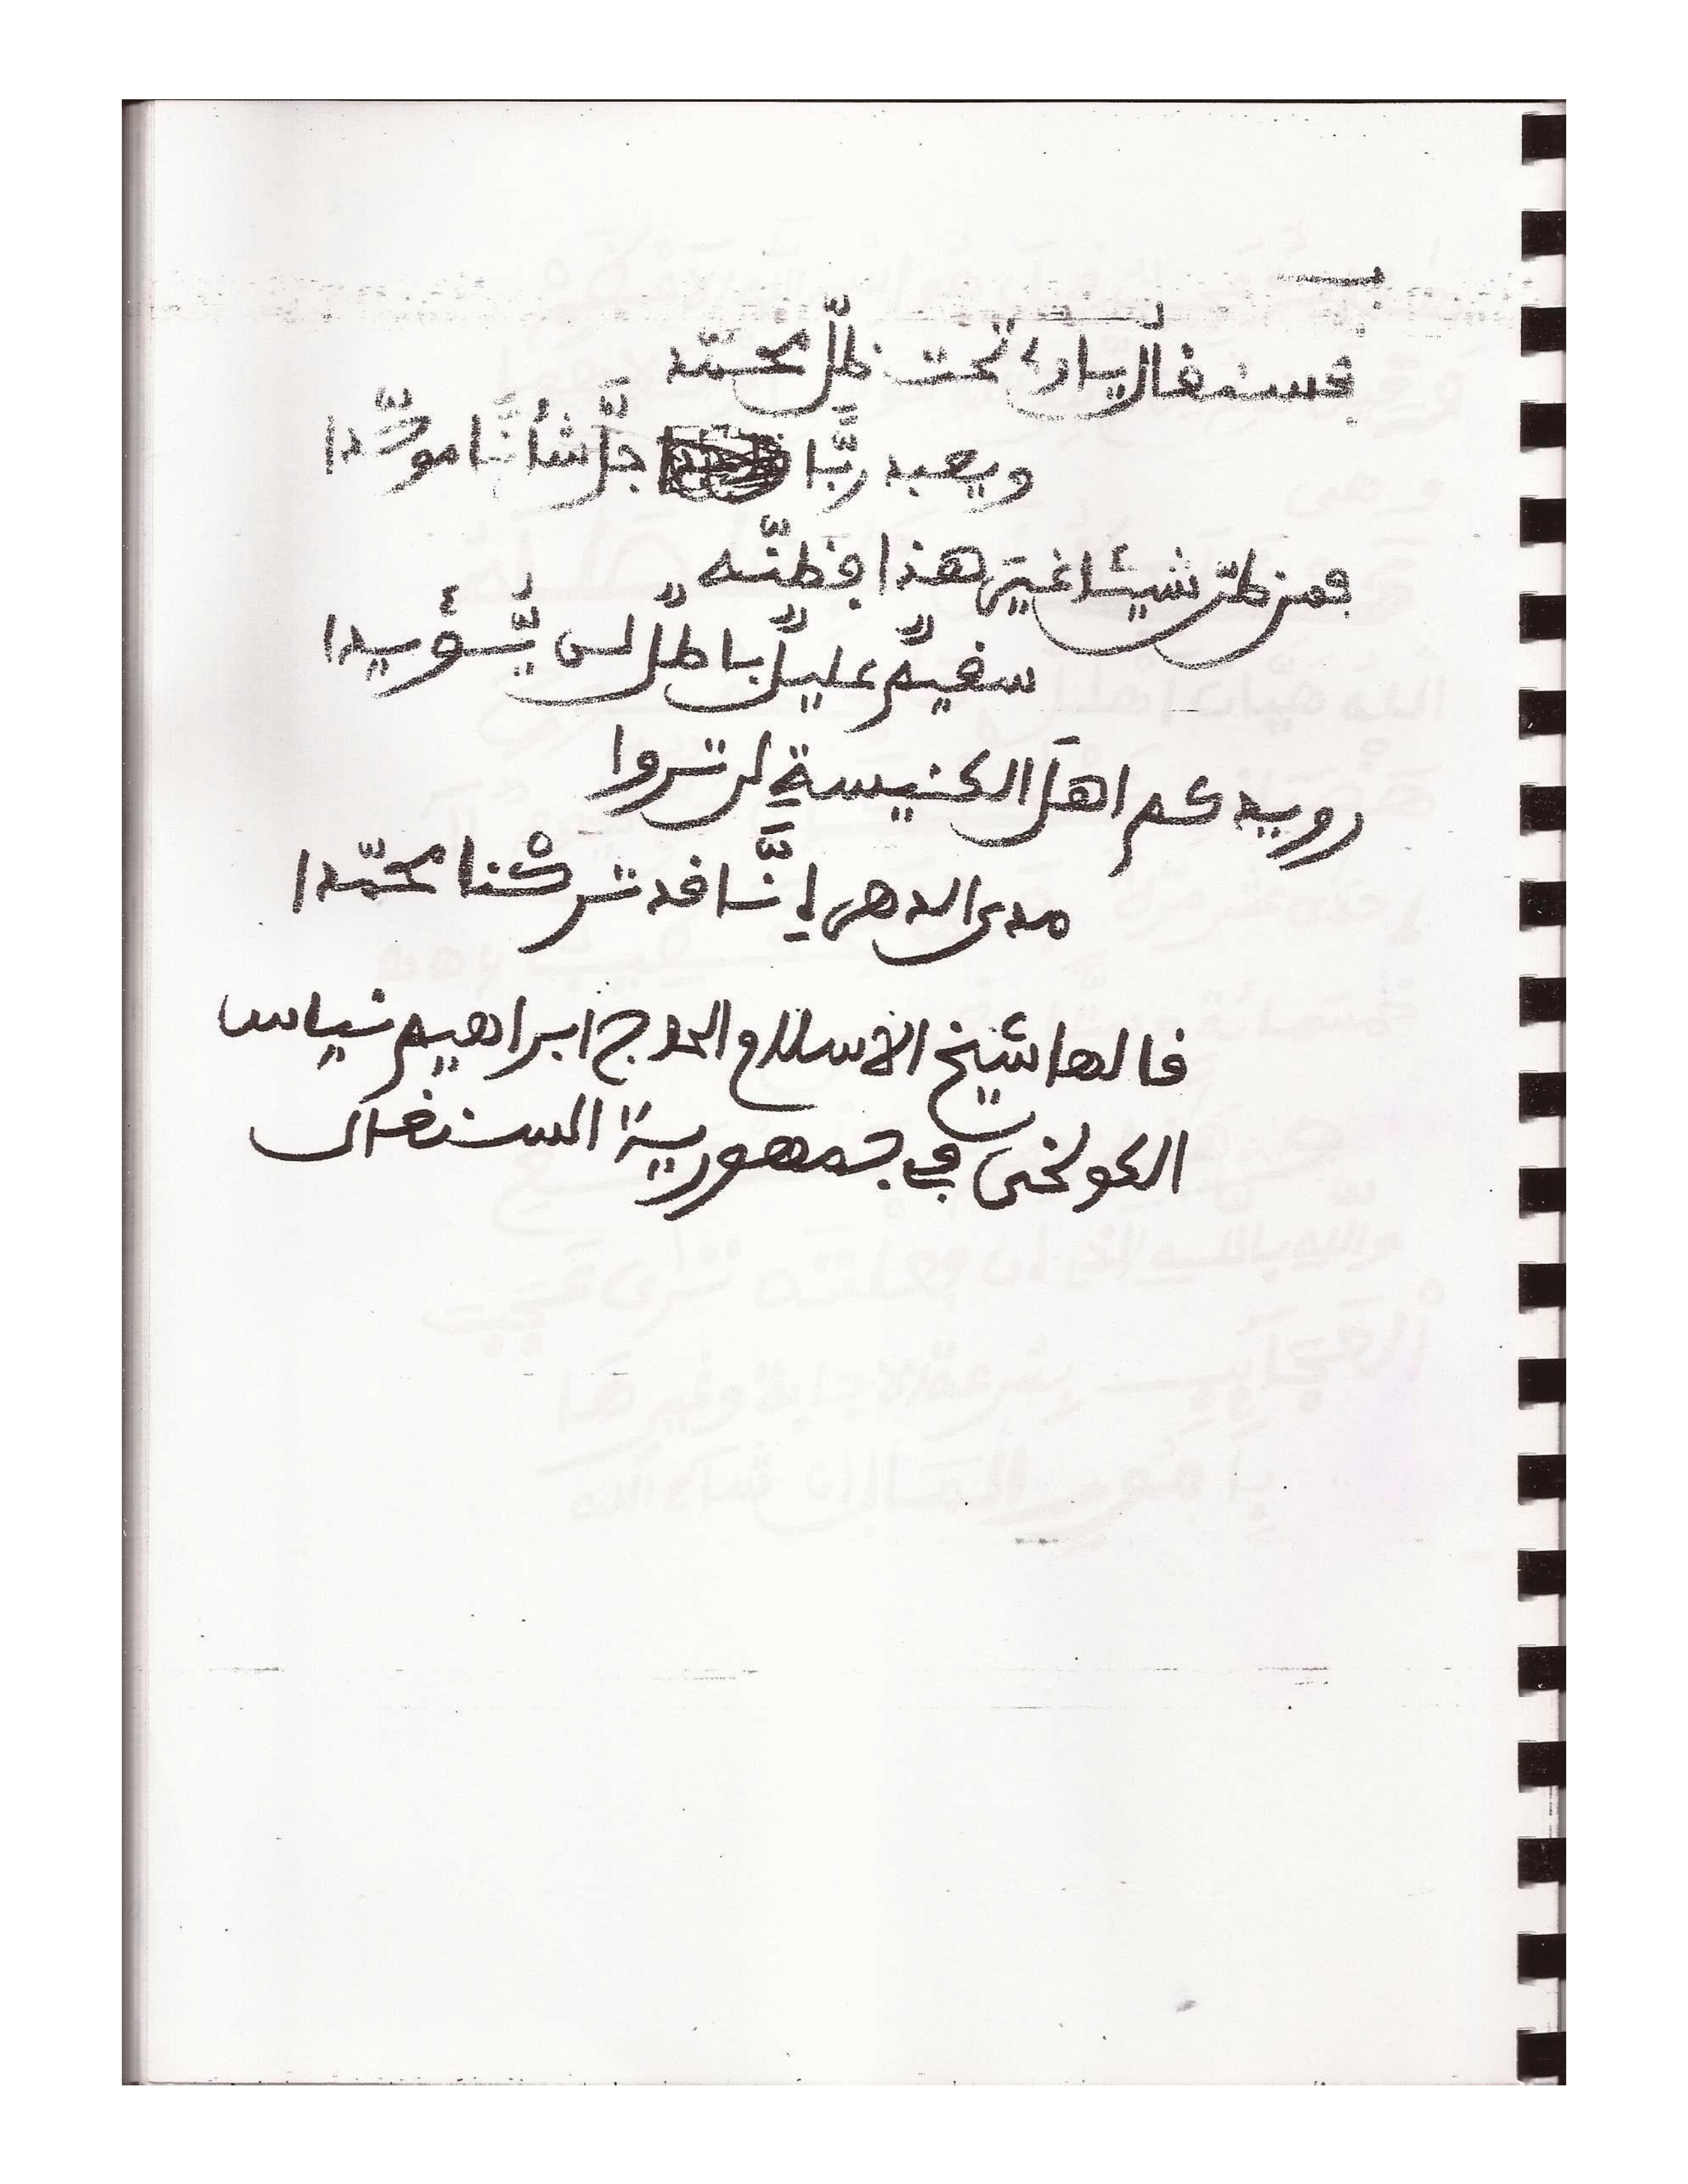 فسنغال ياوي تحت ظلّ محمّد
ويعبد ربًّا جلَّ شأنًا موحّدا
فمن ظنّ شيئا غير هذا فظنّه
سقيمٌ عليلٌ باطلٌ لن يُّؤيدا
رويدكم اهلَ الكنيسةِ لن تروا
مدى الدهر إنَّا قد تركْنا محمّدا
قالها شيخ الاسلام الحاج ابراهيم نياس
الكولخى في جمهورية السنغال